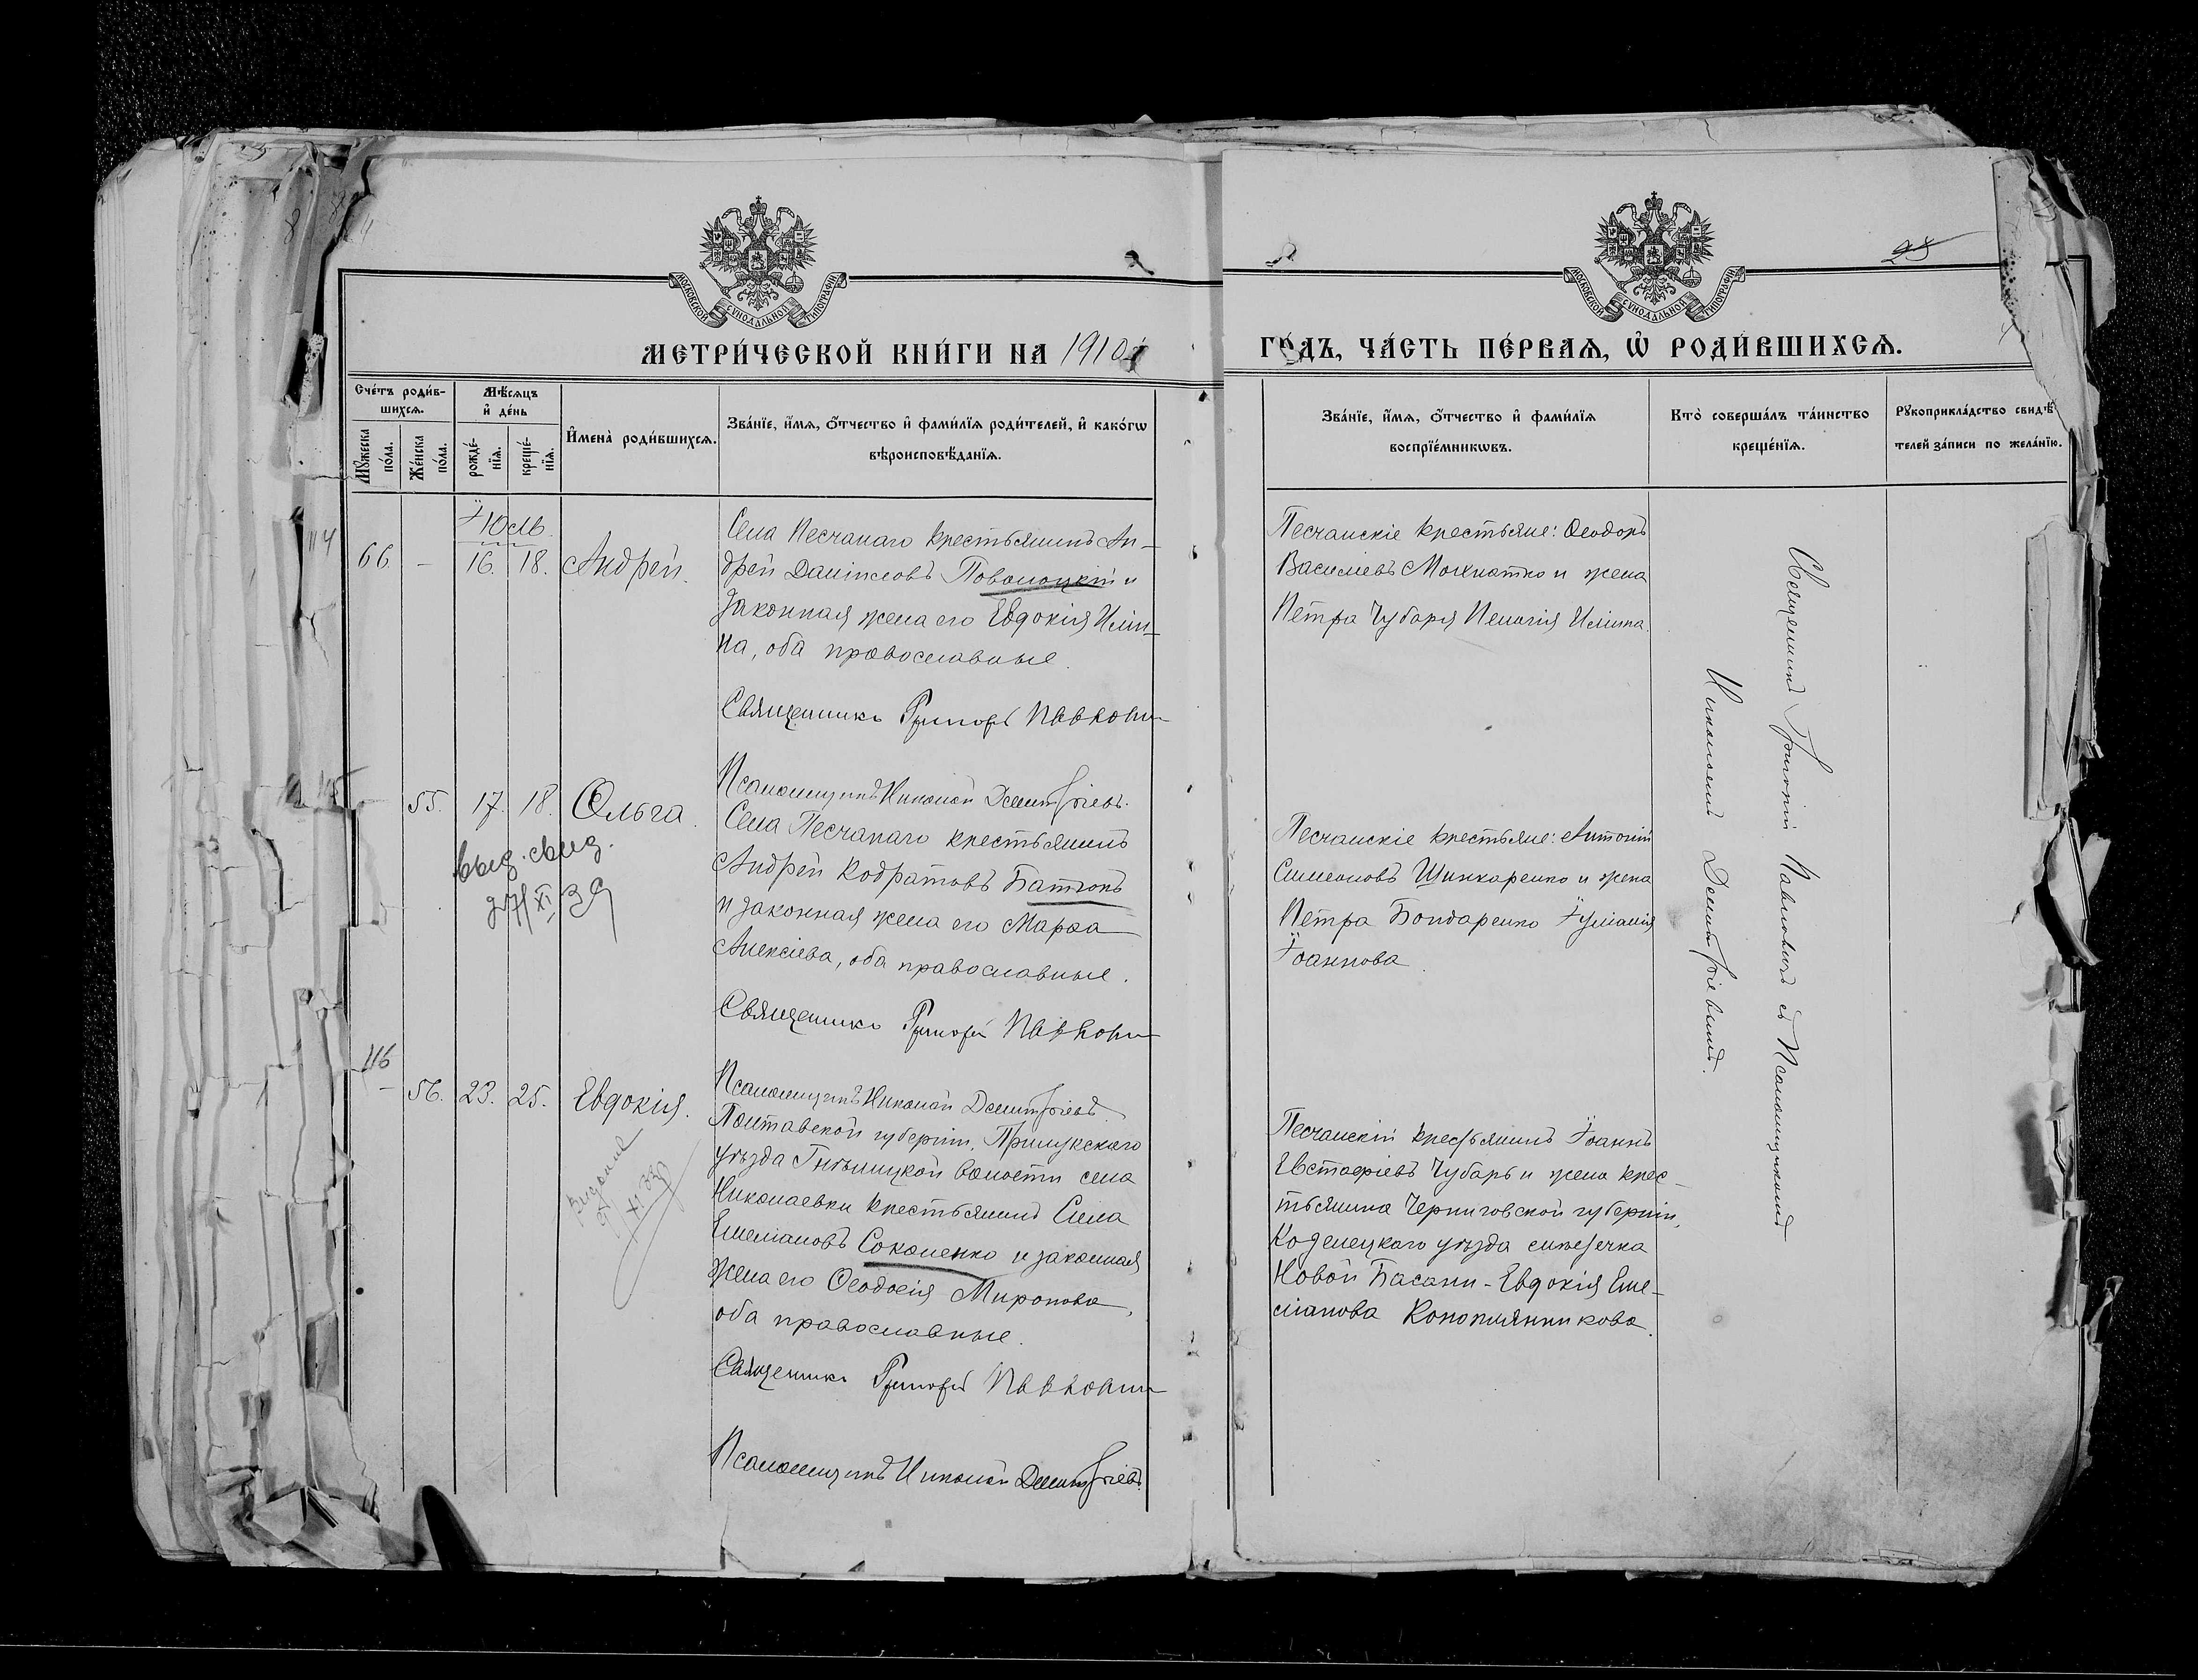 25
МОСКОВСКОЙ СѴНОДАЛЬНОЙ ТИПОГРАФІИ
МОСКОВСКОЙ СѴНОДАЛЬНОЙ ТИПОГРАФІИ
МЕТРИ́ЧЕСКОЙ КНИ́ГИ НА 1910
ГО́ДЪ, ЧА́СТЬ ПЕ́РВАЯ, Ѡ РОДИ́ВШИХСЯ.
Сче́тъ роди́в-
шихся.
Мꙋ́жеска
по́ла.
Же́нска
по́ла.
Мѣ́сяцъ
и҆ де́нь
рожде́-
нїя.
креще́-
нїя.
И҆мена̀ роди́вшихся.
Зва́нїе, и҆́мя, о҆́тчество и҆ фами́лїя роди́телей, и҆ како́гѡ
вѣроисповѣ́данїя.
Зва́нїе, и҆́мя, о҆́тчество и҆ фами́лїя
воспрїе́мникѡвъ.
Кто̀ соверша́лъ та́инство
креще́нїя.
Рꙋкоприкла́дство свидѣ́-
телей за́писи по жела́нїю.
114
Іюль
66. - 16. 18. Андрей.
Села Песчанаго крестьянинъ Ан-
дрей Даніиловъ Поволоцкій и
законная жена его Евдокія Иліи-
на, оба православные.
Священникъ Григорій Павлович
Псаломщикъ Николай Димитріевъ.
Песчанскіе крестьяне: Ѳеодоръ
Василіевъ Мохнатко и жена
Петра Чубаря Пелагія Иліина.
Священникъ Григорій Павловичъ съ Псаломщикомъ
Николаемъ Димитріевымъ.
55. 17. 18. Ольга.
выд. свид.
27/XI 39
Села Песчанаго крестьянинъ
Андрей Кодратовъ Батюкъ
и законная жена его Марѳа
Алексіева, оба православные.
Священникъ Григорій Павлович
Псаломщикъ Николай Димитріевъ
Песчанскіе крестьяне: Антоній
Симеоновъ Шинкаренко и жена
Петра Бондаренко Іуліанія
Іоаннова
116
- 56. 23. 25. Евдокія.
XI 39
Полтавской губерніи, Прилукскаго
уѣзда Гнѣдицкой волости села
Николаевки крестьянинъ Сила
Емеліановъ Соколенко и законная
жена его Ѳеодосія Миронова,
оба православные.
Священникъ Григорій Павлович
Псаломщикъ Николай Димитріевъ.
Песчанскій крестьянинъ Іоаннъ
Евстафіевъ Чубарь и жена крес-
тьянина Черниговской губерніи,
Козелецкаго уѣзда мѣстечка
Новой Басани - Евдокія Еме-
ліанова Коноплянникова.